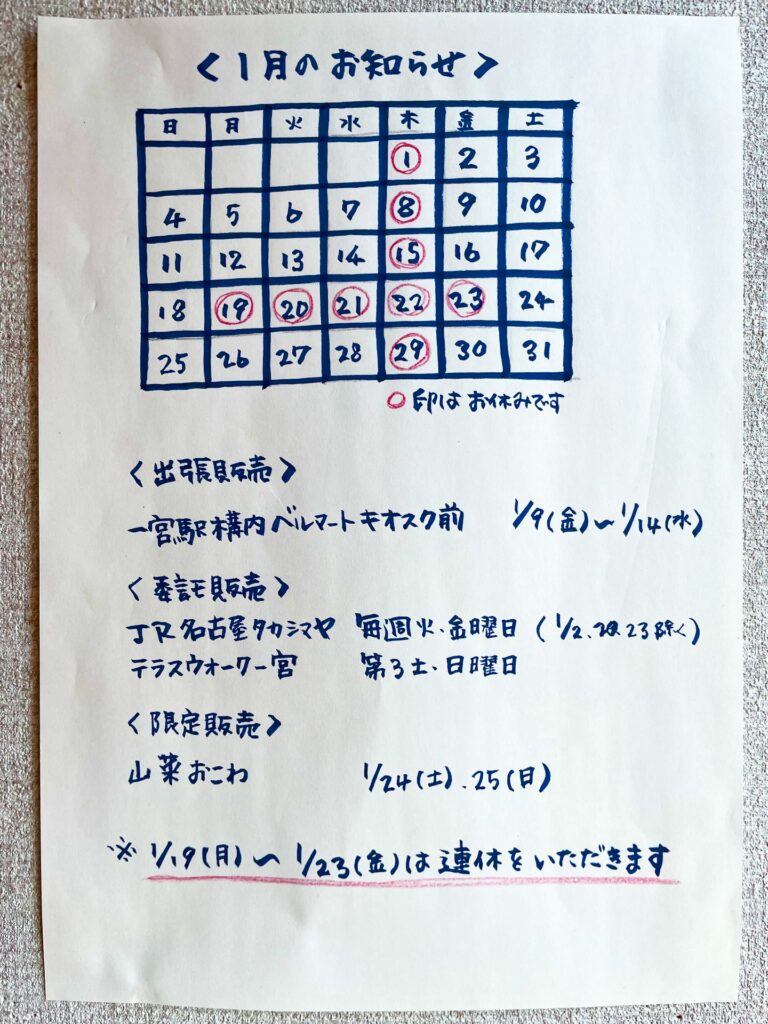 〈1月のお知らせ〉
日 月 火 水 木 金 土
1 2 3
4 5 6 7 8 9 10
11 12 13 14 15 16 17
18 19 20 21 22 23 24
25 26 27 28 29 30 31
○印はお休みです
〈出張販売〉
一宮駅構内ベルマートキオスク前 1/9(金)〜1/14(水)
〈委託販売〉
JR名古屋タカシマヤ 毎週火・金曜日 (1/2、20、23除く)
テラスウォーク一宮 第3土・日曜日
〈限定販売〉
山菜おこわ 1/24(土)、25(日)
※ 1/19(月)〜1/23(金)は連休をいただきます